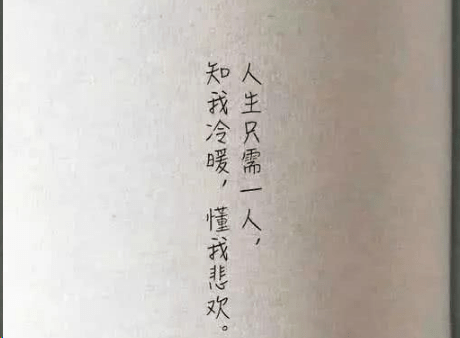 人生只需一人，
知我冷暖，懂我悲欢。